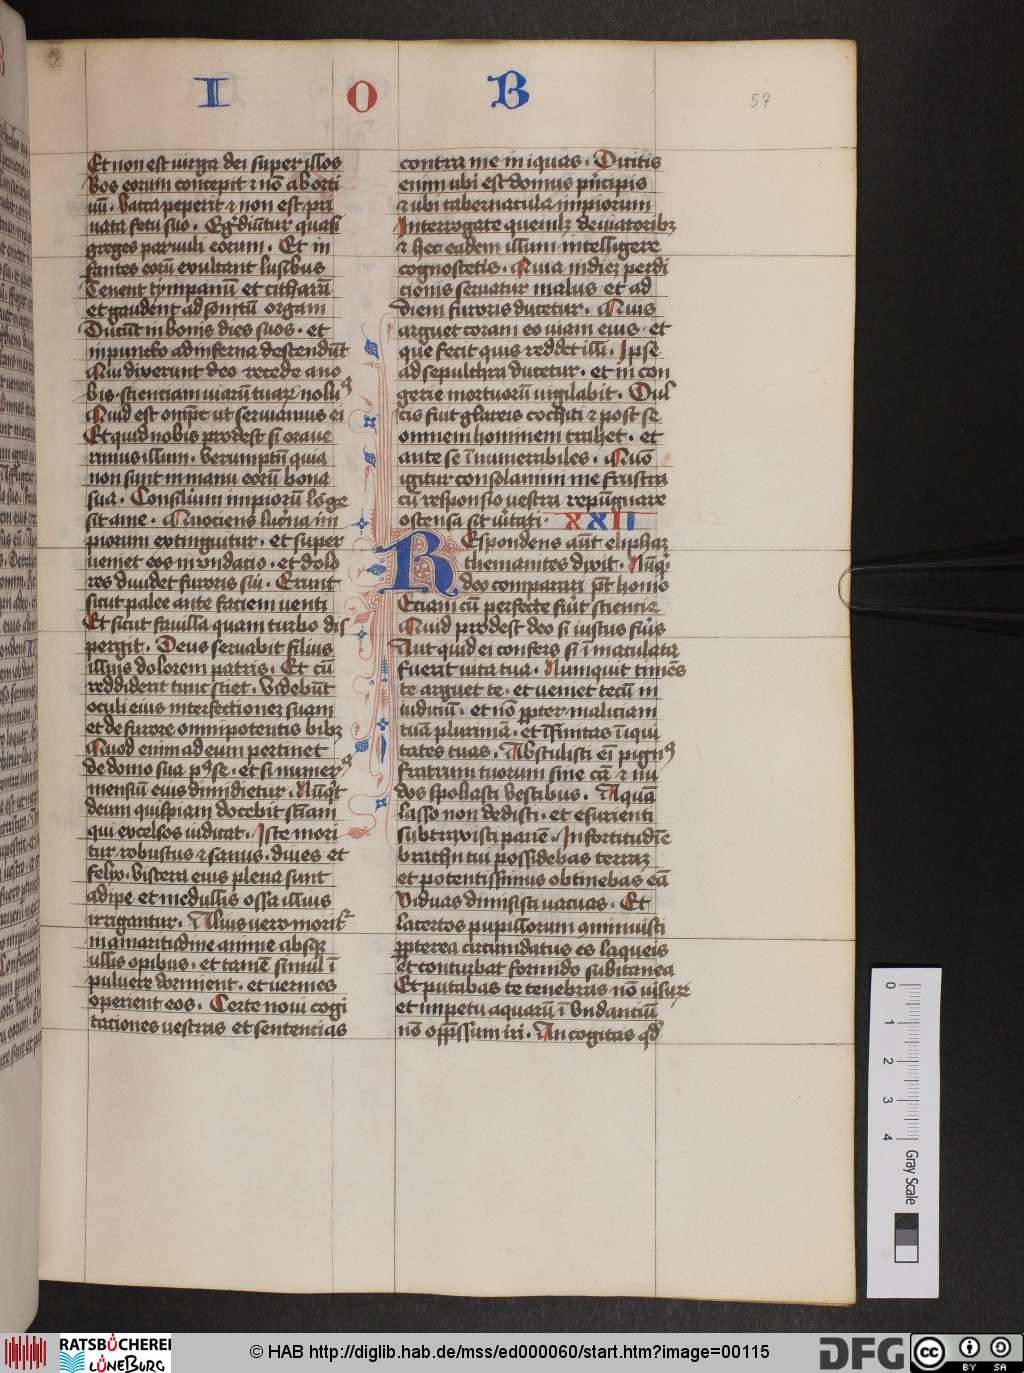 I O B
57
Et non est uirga dei super illos
Bos eorum concepit ⁊ nō aborti
uit. Vacca peperit ⁊ non est pri
uata fetu suo. Egrediūtur quasi
greges paruuli eorum. Et in
fantes eorū exultant lusibus
Tenent tympanū et citharā
et gaudent ad sonitū organi
Ducūt in bonis dies suos. et
in puncto ad inferna descendūt
Qui dixerunt deo recede a no
bis. scientiam uiarū tuarū nolumus
Quis est omps ut seruiamus ei
Et quid nobis prodest si oraue
rimus illum. Verumptn̄ quia
non sunt in manu eorū bona
sua. Consilium impiorū longe
sit a me. Quociens lucerna im
piorum extinguitur. et super
ueniet eos inundatio. et dolo
res diuidet furoris sui. Erunt
sicut palee ante faciem uenti
Et sicut fauilla quam turbo dis
pergit. Deus seruabit filiis
illius dolorem patris. Et cū
reddiderit tunc sciet. Videbūt
oculi eius interfectionem suam
et de furore omnipotentis bibet
Quod enim ad eum pertinet
de domo sua post se. et si numerus
mensiū eius dimidietur. Nūquid
deum quispiam docebit sciam
qui excelsos iudicat. Iste mori
tur robustus ⁊ sanus. diues et
felix. Viscera eius plena sunt
adipe et medullis ossa illius
irrigantur. Alius uero moritur
in amaritudine anime absque
ullis opibus. et tamē simul ī
puluere dormient. et uermes
operient eos. Certe noui cogi
tationes uestras et sententias
contra me iniquas. Dicitis
enim ubi est domus principis
⁊ ubi tabernacula impiorum
Interrogate quemlibet de uiatoribus
⁊ hec eadem illum intelligere
cognoscetis. Quia in diem perdi
cionis seruatur malus et ad
diem furoris ducetur. Quis
arguet coram eo uiam eius. et
que fecit quis reddet illi. Ipse
ad sepulchra ducetur. et in con
gerie mortuorū uigilabit. Dul
cis fuit glareis cochiti ⁊ post se
omnem hominem trahet. et
ante se īnumerabiles. Quō
igitur consolamini me frustra
cū responsio uestra repugnare
ostensa sit ueritati. XXII
22
REspondens aūt eliphaz
themanites dixit. Nūquid
deo comparari pōt homo
Etiam cū perfecte fuerit scientie
Quid prodest deo si iustus fueris
Aut quid ei confers si īmaculata
fuerit uita tua. Numquit timens
te arguet te. et ueniet tecū in
iudiciū. et nō propter maliciam
tuā plurimā. et īfinitas īiqui
tates tuas. Abstulisti em̄ pignus
fratrum tuorum sine cā ⁊ nu
dos spoliasti vestibus. Aquā
lasso non dedisti. et esurienti
subtraxisti panē. In fortitudīe
brachii tui possidebas terram
et potentissimus obtinebas eā
Viduas dimisisti uacuas. Et
lacertos pupillorum cōminuisti
propterea circumdatus es laqueis
et conturbat formido subitanea
Et putabas te tenebras nō uisurum
et impetu aquarū ī vndantiū
nō oppressum iri. An cogitas quod
0
1
2
3
4
Gray Scale
RATSBÜCHEREI
LÜNEBURG
© HAB http://diglib.hab.de/mss/ed000060/start.htm?image=00115
DFG
cc
BY SA